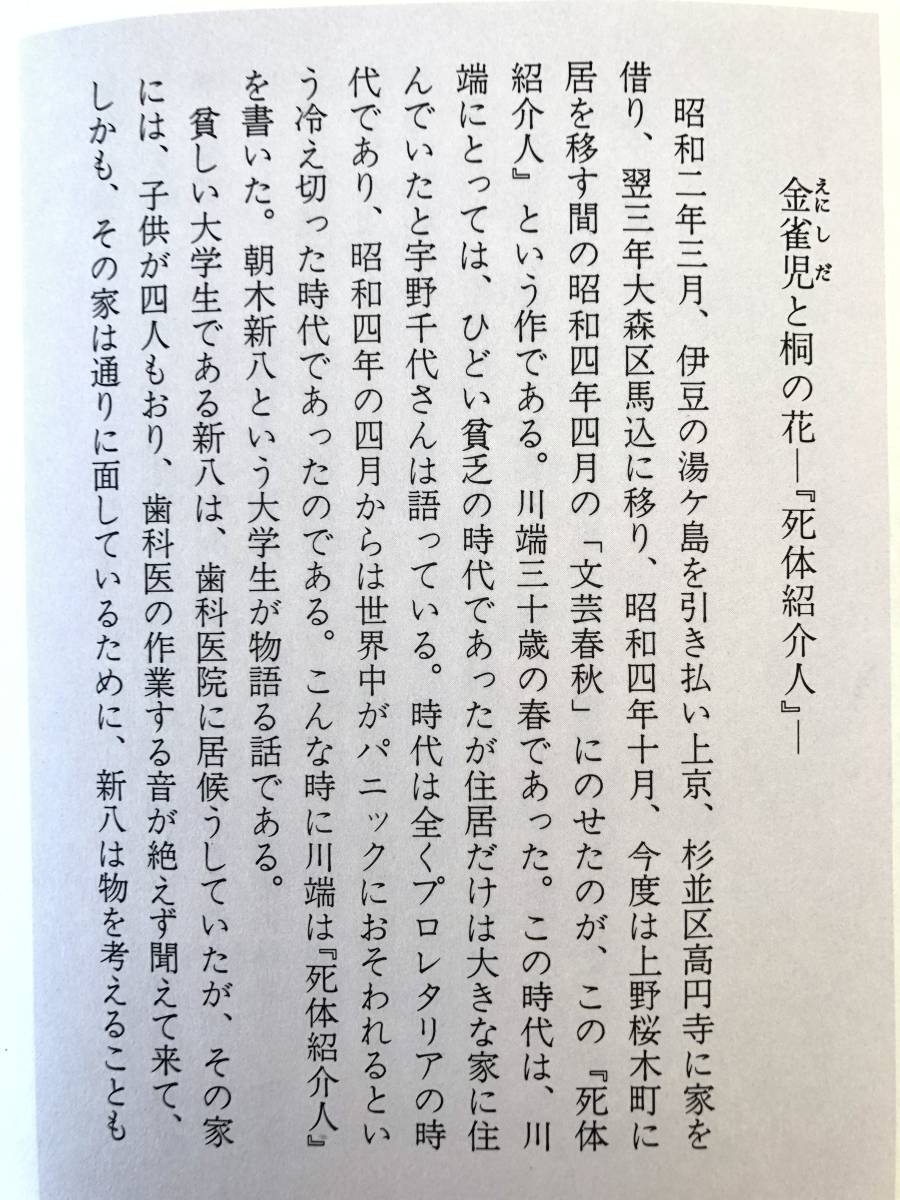 金雀児と桐の花―『死体紹介人』―
えにしだ
昭和二年三月、伊豆の湯ケ島を引き払い上京、杉並区高円寺に家を
借り、翌三年大森区馬込に移り、昭和四年十月、今度は上野桜木町に
居を移す間の昭和四年四月の「文芸春秋」にのせたのが、この『死体
紹介人』という作である。川端三十歳の春であった。この時代は、川
端にとっては、ひどい貧乏の時代であったが住居だけは大きな家に住
んでいたと宇野千代さんは語っている。時代は全くプロレタリアの時
代であり、昭和四年の四月からは世界中がパニックにおそわれるとい
う冷え切った時代であったのである。こんな時に川端は『死体紹介人』
を書いた。朝木新八という大学生が物語る話である。
貧しい大学生である新八は、歯科医院に居候うしていたが、その家
には、子供が四人もおり、歯科医の作業する音が絶えず聞えて来て、
しかも、その家は通りに面しているために、新八は物を考えることも